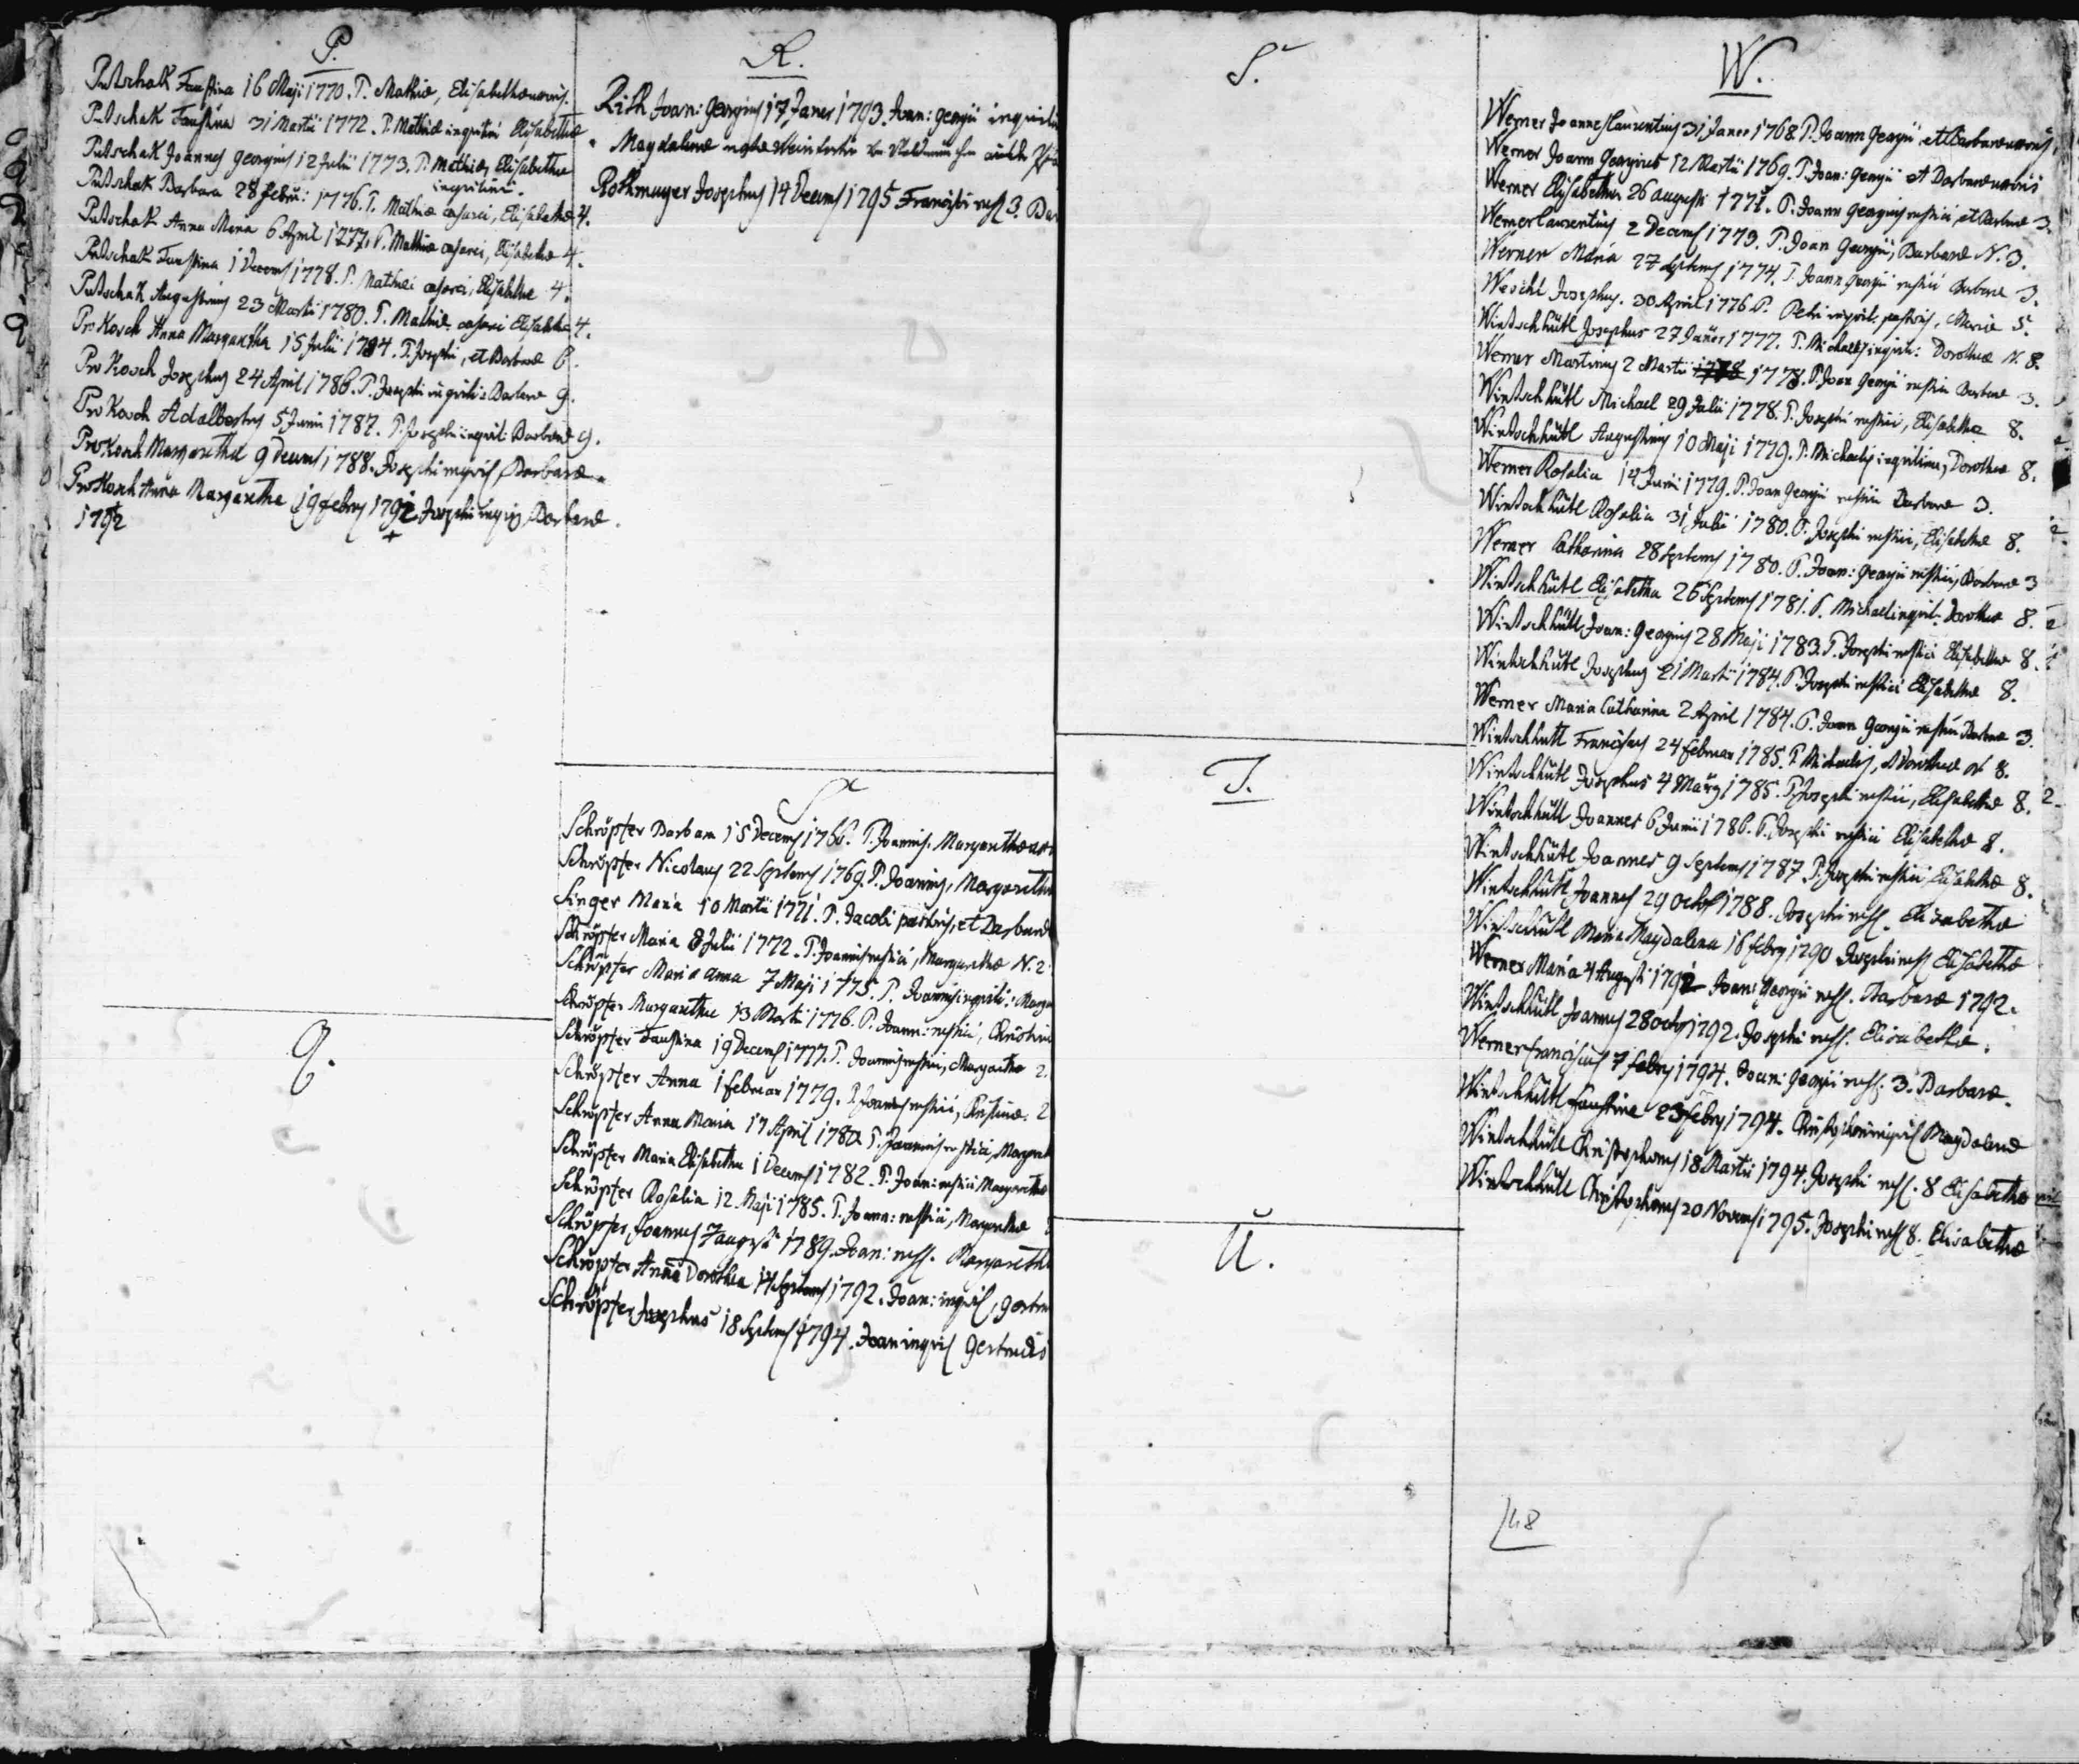 P.
Putschak Faustina 16 Maji 1770. P. Mathiæ, Elisabethæ uxoris.
Putschak Faustina 31 Martii 1772. P. Mathiæ inquilini Elisabethæ
Putschak Joannes Georgius 12 Julii 1773. P. Mathiæ, Elisabethæ
inquilini.
Putschak Barbara 28 Febru: 1776. P. Mathiæ casarii, Elisabethæ 4.
Putschak Anna Maria 6 April 1777. P. Mathiæ casarii, Elisabethæ 4.
Putschak Faustina 1 Decemb 1778. P. Mathiæ casarii, Elisabethæ 4.
Putschak Augustinus 23 Martii 1780. P. Mathiæ casarii Elisabethæ 4.
Prokosch Anna Margaretha 15 Julii 1784. P. Josephi, et Barbaræ 6.
Prokosch Josephus 24 April 1786. P. Josephi inquili: Barbaræ 9.
Prokosch Adalbertus 5 Junii 1787. P. Josephi inquil: Barbaræ 9.
Prokosch Margaretha 9 Decemb 1788. Josephi inquil Barbaræ.
Prokosch Anna Margaretha 19 febry 1792 Josephi inquil Barbaræ.
1792 +
Q.
R.
Rith Joan: Georgius 17 Janer 1793. Joan: Georgii inquilin
Magdalenæ
Rothmayer Josephus 14 Decemb 1795 Francisci rust 3. Bar
S
Schröpfer Barbara 15 Decemb 1766. P. Joannis. Margarethæ uxor
Schröpfer Nicolaus 22 Septemb 1769. P. Joannis, Margarethæ
Singer Maria 10 Martii 1771. P. Jacobi pastoris, et Barbaræ
Schröpfer Maria 8 Julii 1772. P. Joannis rustici, Margarethæ N. 2.
Schröpfer Maria Anna 7 Maji 1775. P. Joannis inquili: Marga
Schröpfer Margaretha 13 Martii 1776. P. Joann: rustici, Christinæ
Schröpfer Faustina 19 Decemb 1777. P. Joannis rustici, Margarethæ 2.
Schröpfer Anna 1 Februar 1779. P. Joannis rustici, Christinæ. 2
Schröpfer Anna Maria 17 April 1780. P. Joannis rustici, Margareth
Schröpfer Maria Elisabetha 1 Decemb 1782. P. Joan: rustici Margarethæ
Schröpfer Rosalia 12 Maji 1785. P. Joann: rustici, Margarethæ
Schröpfer Joannes 7 august 1789. Joan: rust. Margarethæ
Schröpfer Anna Dorothea 14 Septemb 1792. Joan: inquil, Gertru
Schröpfer Josephus 18 Septemb 1794. Joan inquil Gertrudis
S.
T.
U.
W.
Werner Joannes Laurentius 31 Janer 1768 P. Joann Georgii et Barbaræ uxoris,
Werner Joann Georgius 12 Martii 1769. P. Joan: Georgii et Barbaræ uxoris
Werner Elisabetha 26 augusti 1771. P. Joann Georgius rustici, et Barbaræ 3.
Werner Laurentius 2 Decemb 1773. P. Joan Georgii, Barbaræ N. 3.
Werner Maria 27 Septemb 1774. P. Joann Georgii rustici Barbaræ 3.
Weschl Josephus. 30 April 1776 P. Petri inquil. pastoris, Mariæ 5.
Wintschhütl Josephus 27 Janer 1777. P. Michaelis inquili: Dorotheæ N. 8.
Werner Martinus 2 Martii 1778. P. Joan Georgii rustici Barbaræ 3.
Wintschhütl Michael 29 Julii 1778. P. Josephi rustici, Elisabethæ 8.
Wintschhütl Augustinus 10 Maji 1779. P. Michaelis inquilini, Dorotheæ 8.
Werner Rosalia 14 Junii 1779. P. Joan Georgii rustici Barbaræ 3.
Wintschhütl Rosalia 31 Julii 1780. P. Josephi rustici, Elisabethæ 8.
Werner Catharina 28 Septemb 1780. P. Joan: Georgii rustici, Barbaræ 3
Wintschhütl Elisabetha 26 Septemb 1781. P. Michael inquil. Dorotheæ 8.
Wintschhütl Joan: Georgius 28 Maji 1783. P. Josephi rustici Elisabethæ 8.
Wintschhütl Josephus 21 Martii 1784. P. Josephi rustici Elisabethæ 8.
Werner Maria Catharina 2 April 1784. P. Joan Georgii rustici Barbaræ 3.
Wintschhütl Franciscus 24 Februar 1785. P. Michaelis, et Dorotheæ N 8.
Wintschhütl Josephus 4 März 1785. P. Josephi rustici, Elisabethæ 8.
Wintschhütl Joannes 6 Junii 1786. P. Josephi rustici Elisabethæ 8.
Wintschhütl Joannes 9 Septemb 1787 P. Josephi rustici, Elisabethæ 8.
Wintschhütl Joannes 29 octob 1788. Josephi rust. Elisabethæ
Wintschhütl Maria Magdalena 16 febry 1790 Josephi rust Elisabethæ
Werner Maria 4 Augusti 1792 Joan: Georgii rust. Barbaræ 1792.
Wintschhütl Joannes 28 octob 1792. Josephi rust. Elisabethæ.
Werner Franciscus 7 febry 1794. Joan: Georgii rust. 3. Barbaræ.
Wintschhütl Faustina 23 febry 1794. Christophori inquil Magdalenæ
Wintschhütl Christophorus 18 Martii 1794. Josephi rust. 8 Elisabethæ
Wintschhütl Christophorus 20 Novemb 1795. Josephi rust 8. Elisabethæ
148